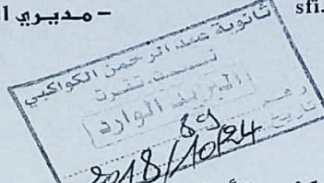 - مديري ا
sfi.
ثانوية عبد الرحمن الكواكبي
تقرت
البريد الوارد
رقم 89
تاريخ 2018/10/24